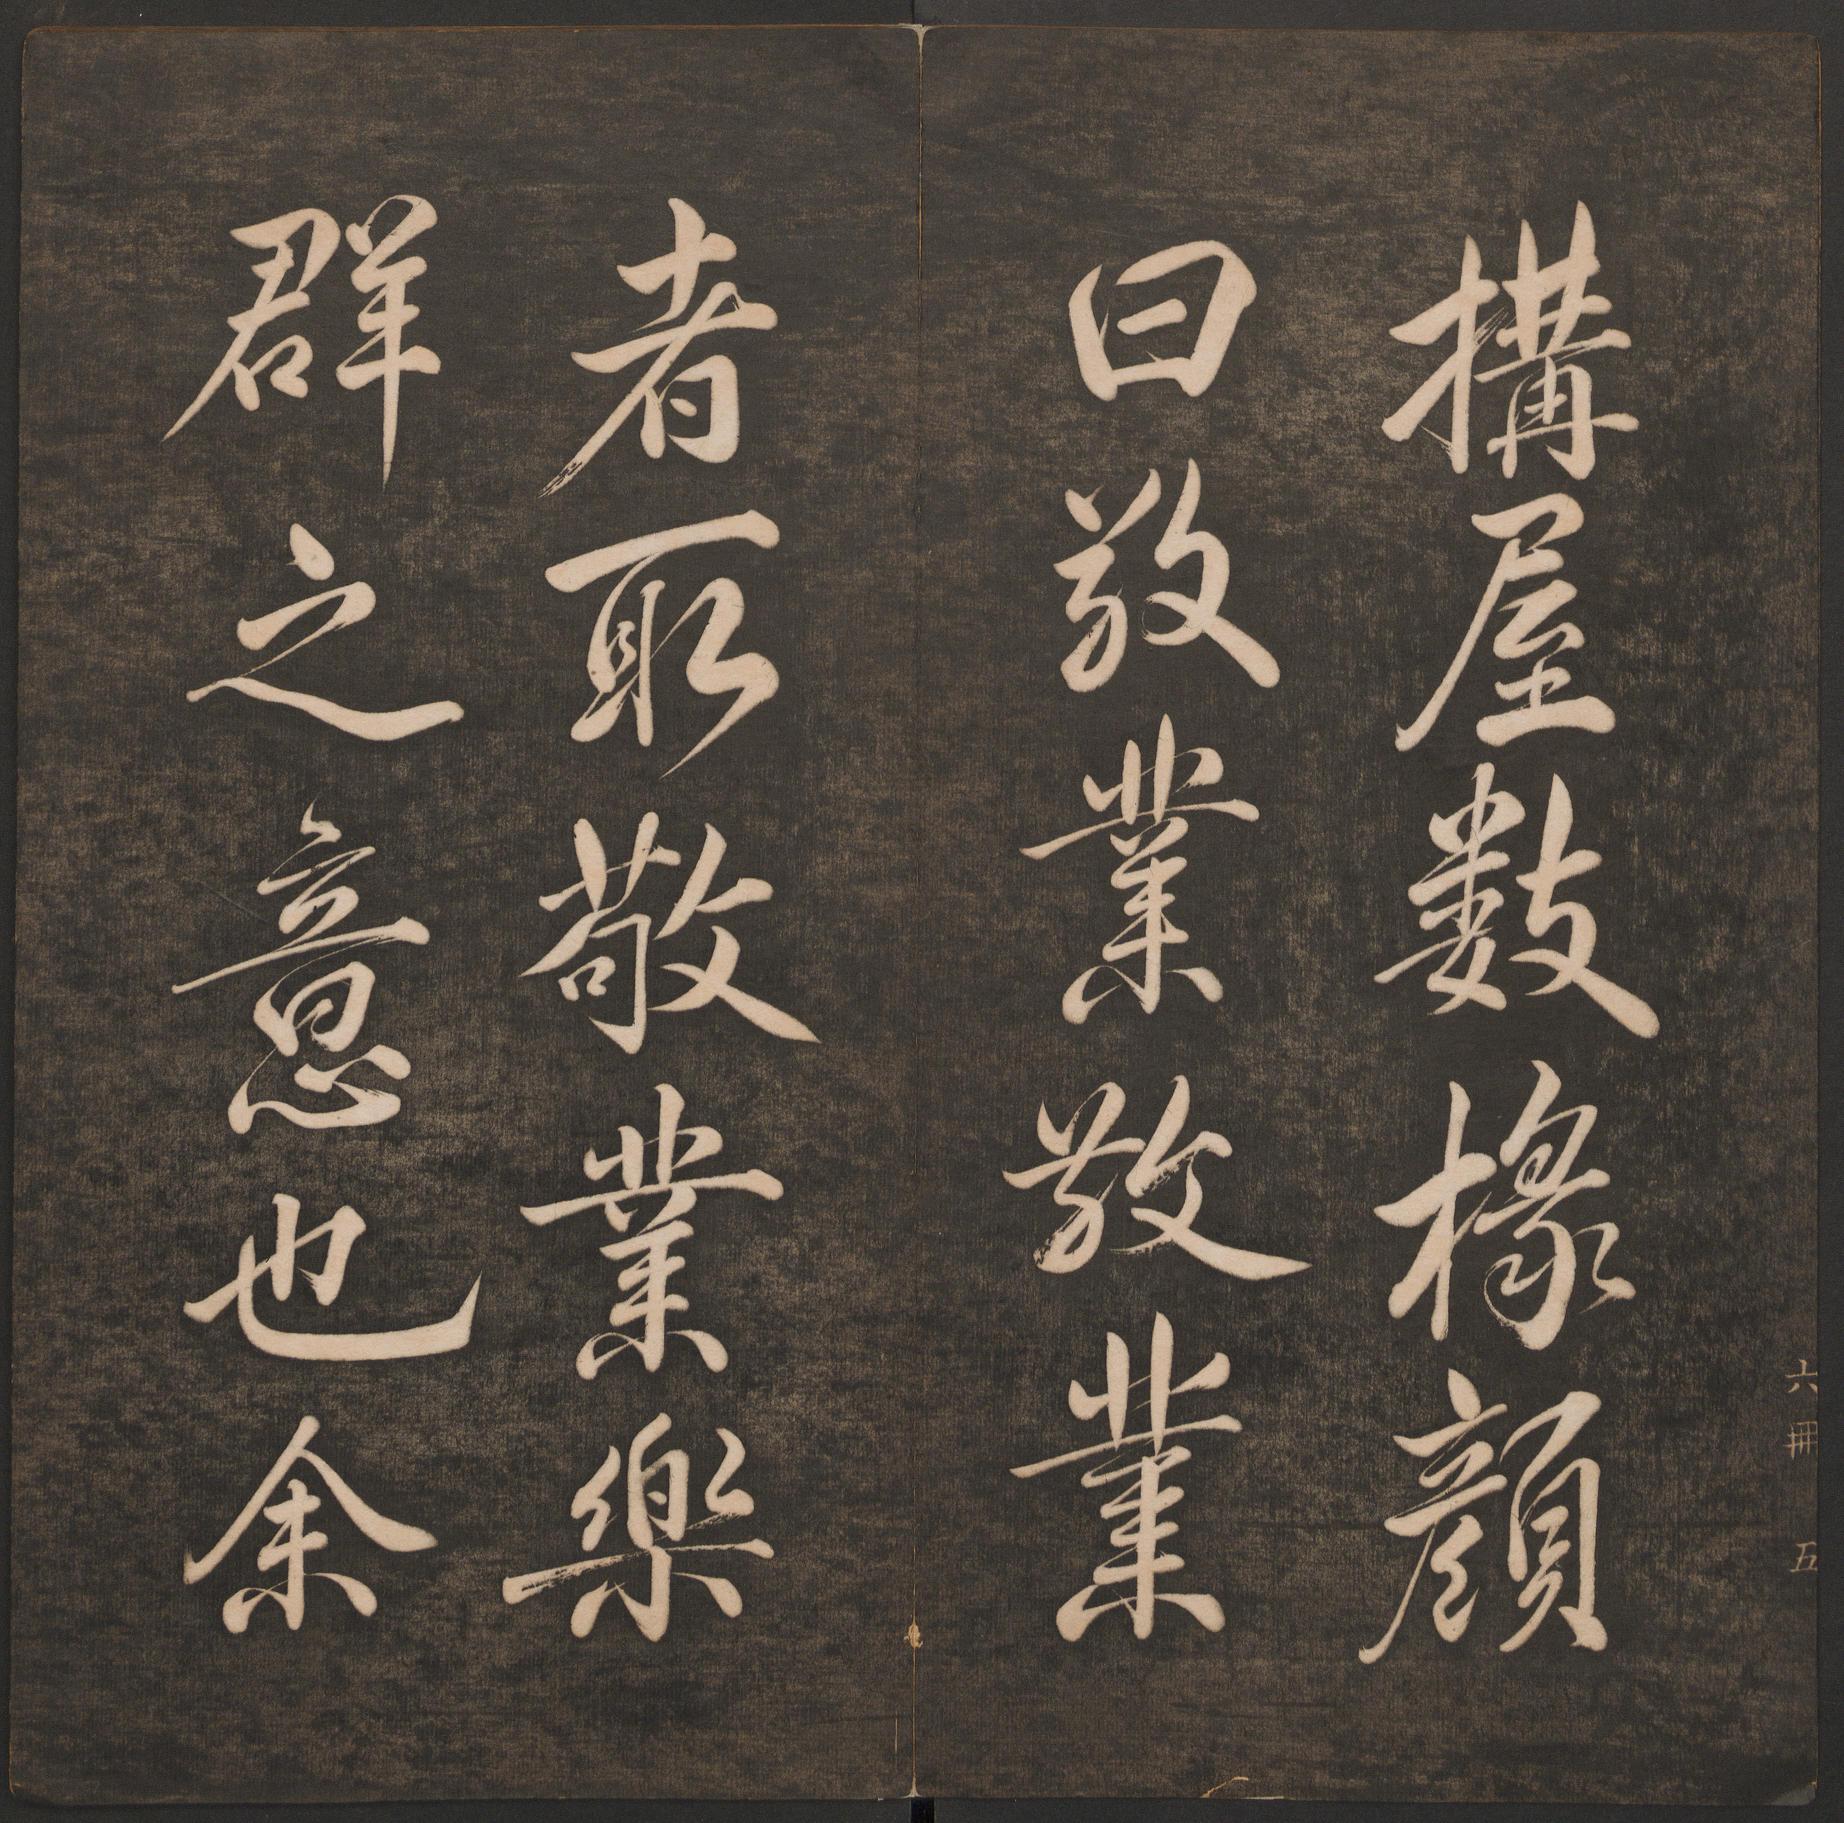 搆屋數椽顔
曰敬業敬業
者取敬業樂
群之意也余
六冊 五